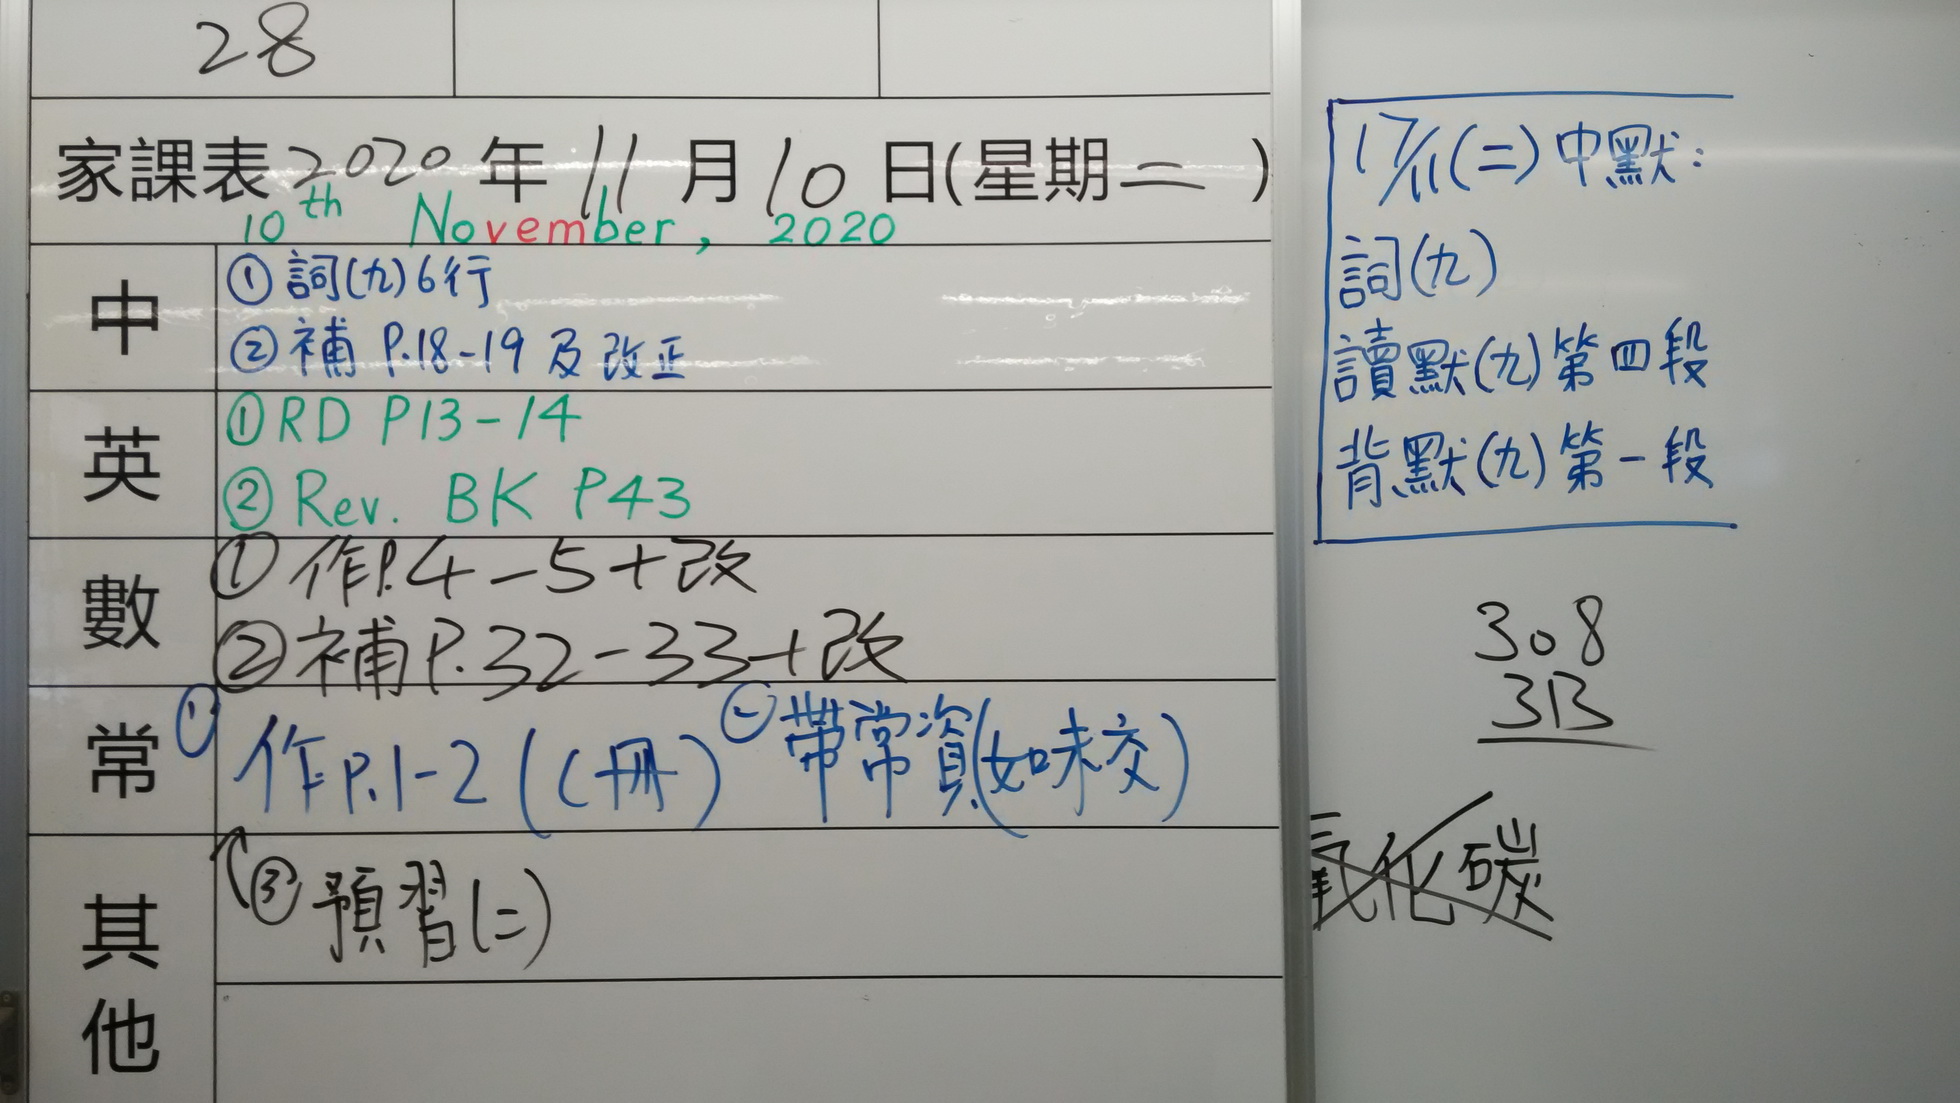 28
家課表2020年11月10日(星期二)
10th November, 2020
中
①詞(九)6行
②補 P.18-19 及改正
英
①RD P13-14
②Rev. BK P43
數
①作P.4-5+改
②補P.32-33+改
常
①作P.1-2(C冊) ②帶常資(如未交)
其他
③預習(二)
17/11(二)中默:
詞(九)
讀默(九)第四段
背默(九)第一段
308
3B
氧化碳